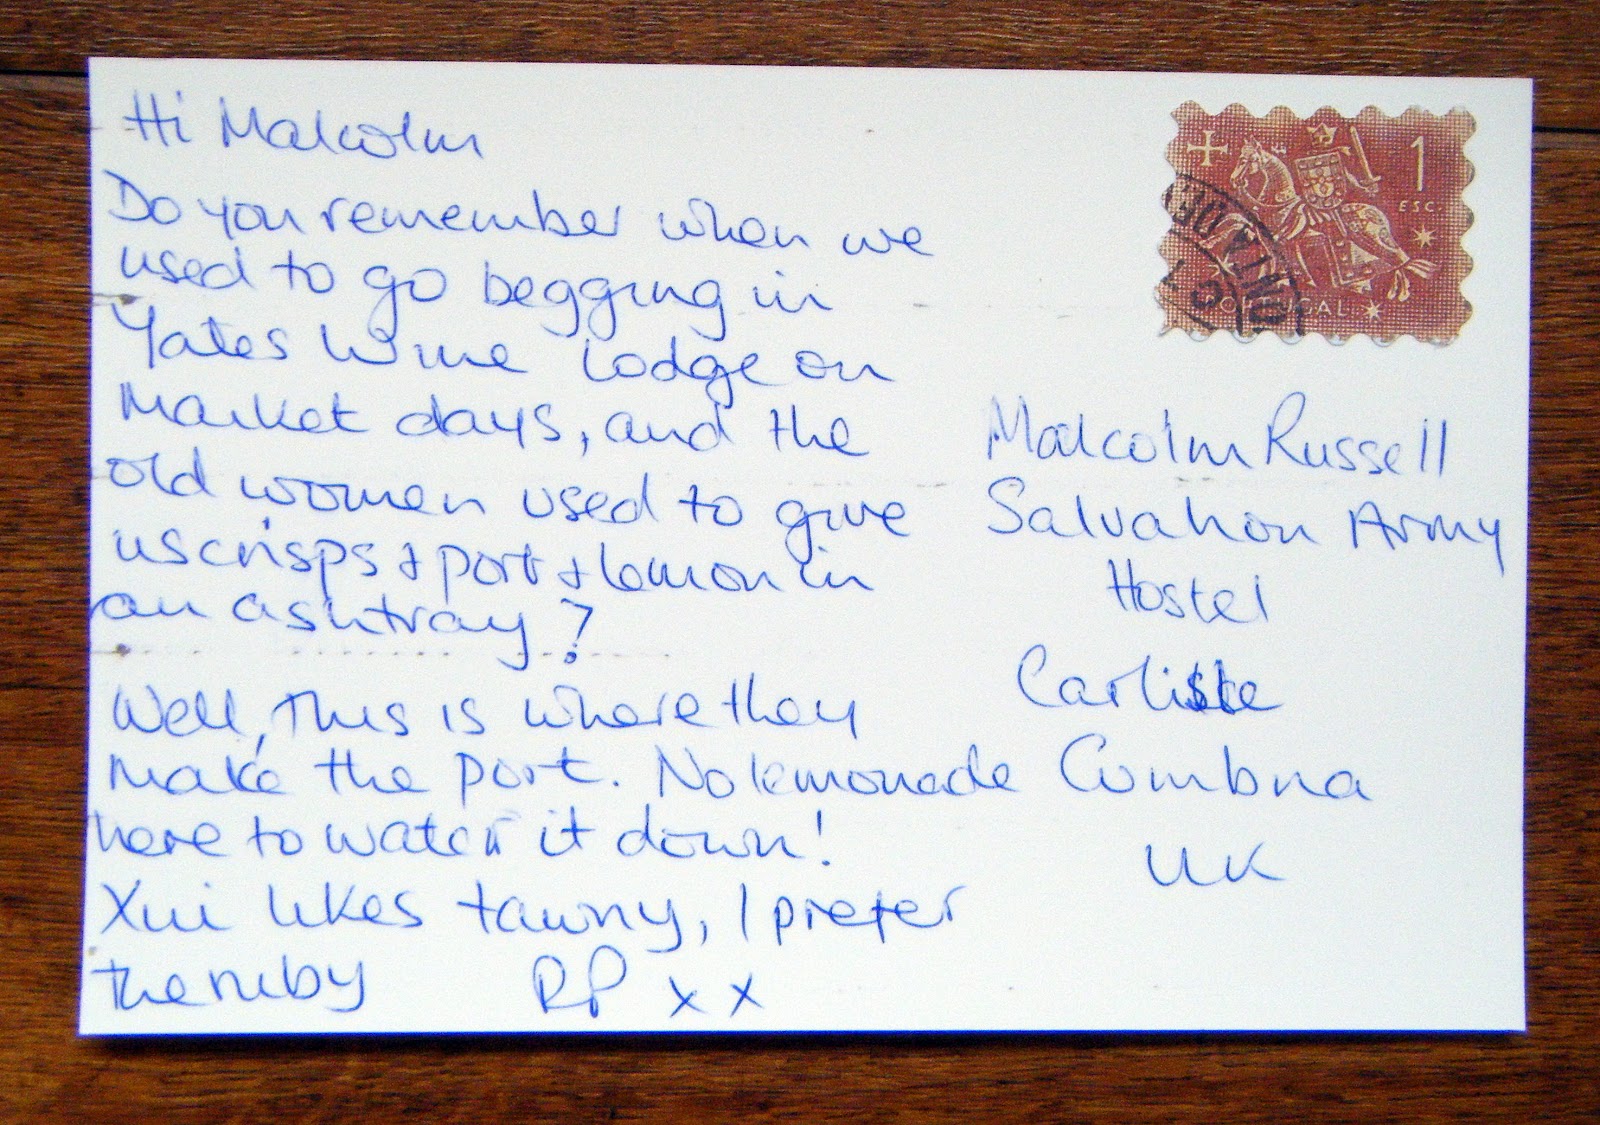 Hi Malcolm
Do you remember when we
used to go begging in
Yates Wine Lodge on
Market days, and the
old women used to give
us crisps & port & lemon in
an ashtray?
Well, this is where they
make the port. No lemonade
here to water it down!
Xui likes tawny, I prefer
the ruby RP xx
1
ESC.
PORTUGAL
Malcolm Russell
Salvation Army
Hostel
Carlisle
Cumbria
UK